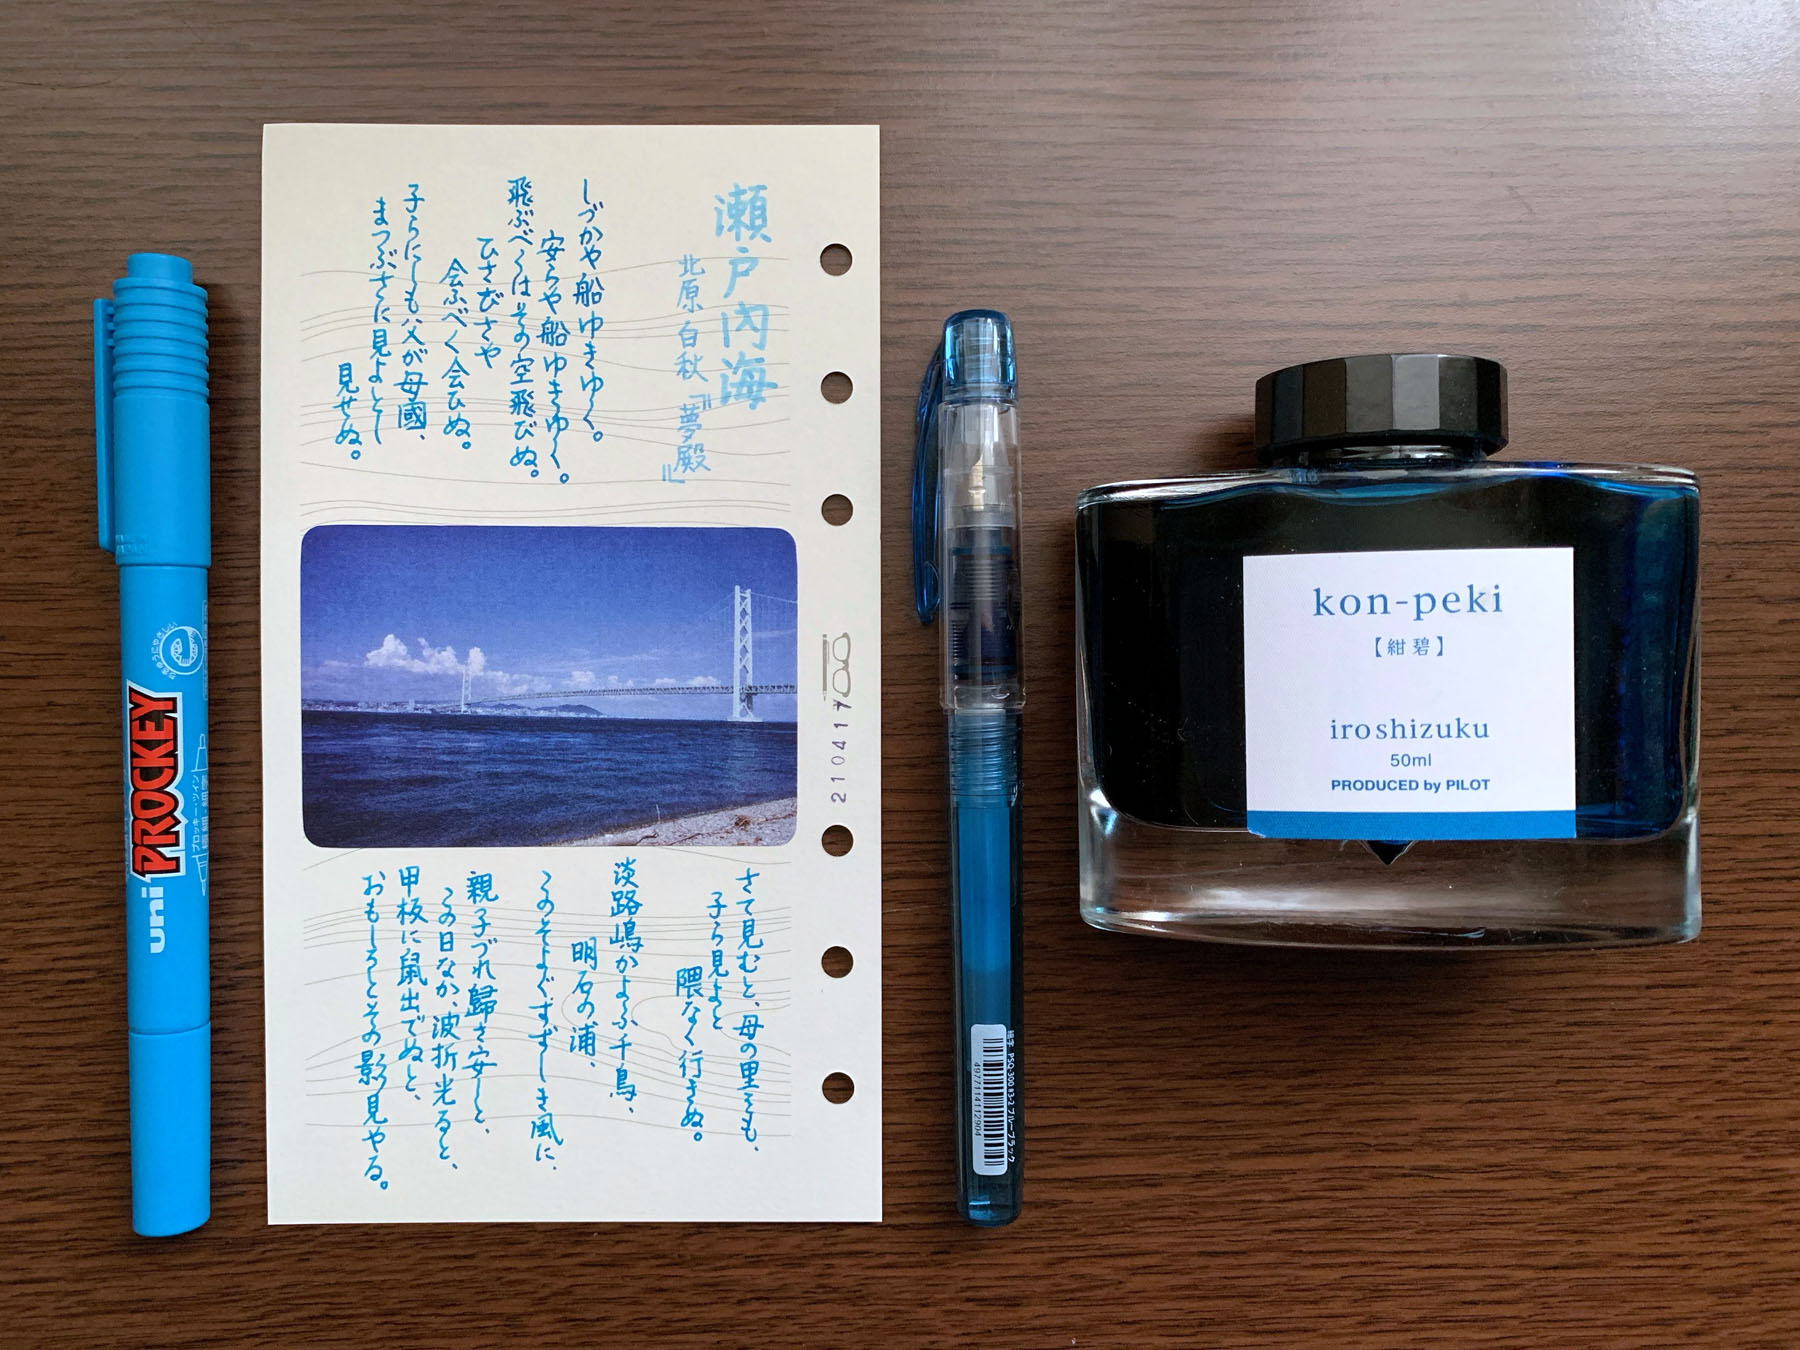 瀬戸内海
北原白秋『夢殿』
しづかや船ゆきゆく。
安らや船ゆきゆく。
飛ぶべくはその空飛びぬ。
ひさびさや
会ふべく会ひぬ。
子らにしも父が母國、
まつぶさに見よとし
見せぬ。
さて見むと、母の里をも、
子ら見まと
隈なく行きぬ。
淡路嶋かよふ千鳥、
明石の浦、
このそよぐすずしき風に、
親子づれ歸さ安しと、
この日なか、波折光ると、
甲板に鼠出でぬと、
おもしろとその影見やる。
210417
uni PROCKEY
プロッキー・ツイン
極細・細字
kon-peki
【紺碧】
iroshizuku
50ml
PRODUCED by PILOT
細字 PSQ-300 #3-2 ブルーブラック
4977114112904